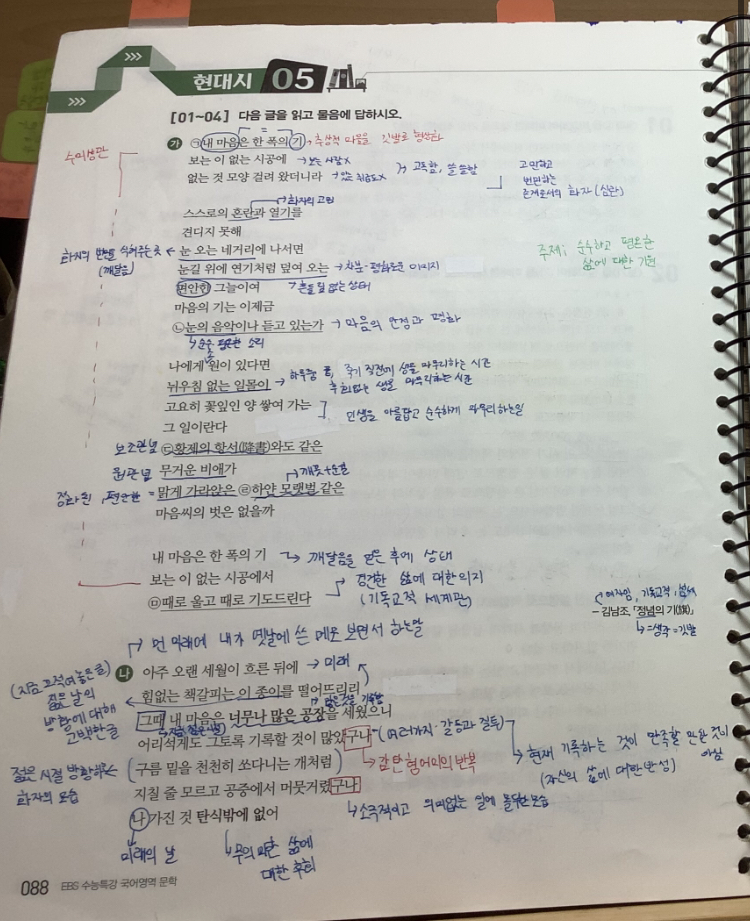 현대시 05
[01~04] 다음 글을 읽고 물음에 답하시오.
가 ㉠내 마음은 한 폭의 기 → 추상적 마음을 깃발로 형상화
수미상관
보는 이 없는 시공에 → 보는 사람x
없는 것 모양 걸려 왔더니라
고독함, 쓸쓸함
고민하고
번민하는
존재로서의 화자 (심란)
화자의 고뇌
스스로의 혼란과 열기를
견디지 못해
눈 오는 네거리에 나서면
(깨달음)
눈길 위에 연기처럼 덮여 오는 → 차분·평화로운 이미지
주제; 순수하고 평온한
삶에 대한 기원
편안한 그늘이여 → 흔들림 없는 상태
마음의 기는 이제금
㉡눈의 음악이나 듣고 있는가 → 마음의 안정과 평화
나에게 원이 있다면
뉘우침 없는 일몰이
고요히 꽃잎인 양 쌓여 가는
그 일이란다
인생을 아름답고 순수하게 마무리하는일
보조관념 ㉢황제의 항서(降書)와도 같은
원관념 무거운 비애가
깨끗+순수
맑게 가라앉은 ㉣하얀 모랫벌 같은
마음씨의 벗은 없을까
내 마음은 한 폭의 기 → 깨달음을 얻은 후에 상태
보는 이 없는 시공에서
경건한 삶에 대한의지
(기독교적 세계관)
㉤때로 울고 때로 기도드린다
– 김남조, 「정념의 기(旗)」
=생각 =깃발
먼 미래에 내가 옛날에 쓴 메모 보면서 하는말
나 아주 오랜 세월이 흐른 뒤에 → 미래
힘없는 책갈피는 이 종이를 떨어뜨리리
젊은 날의
방황에 대해
고백한글
그때 내 마음은 너무나 많은 공장을 세웠으니
어리석게도 그토록 기록할 것이 많았구나
(여러가지·갈등과 질투)
현재 기록하는 것이 만족할 만한 것이
아님
(자신의 삶에 대한반성)
감탄형어미의 반복
구름 밑을 천천히 쏘다니는 개처럼
젊은 시절 방황하는
화자의 모습
지칠 줄 모르고 공중에서 머뭇거렸구나
소극적이고 의미없는 일에 몰두한모습
나 가진 것 탄식밖에 없어
미래의 날
무의미한 삶에
대한 후회
088 EBS 수능특강 국어영역 문학